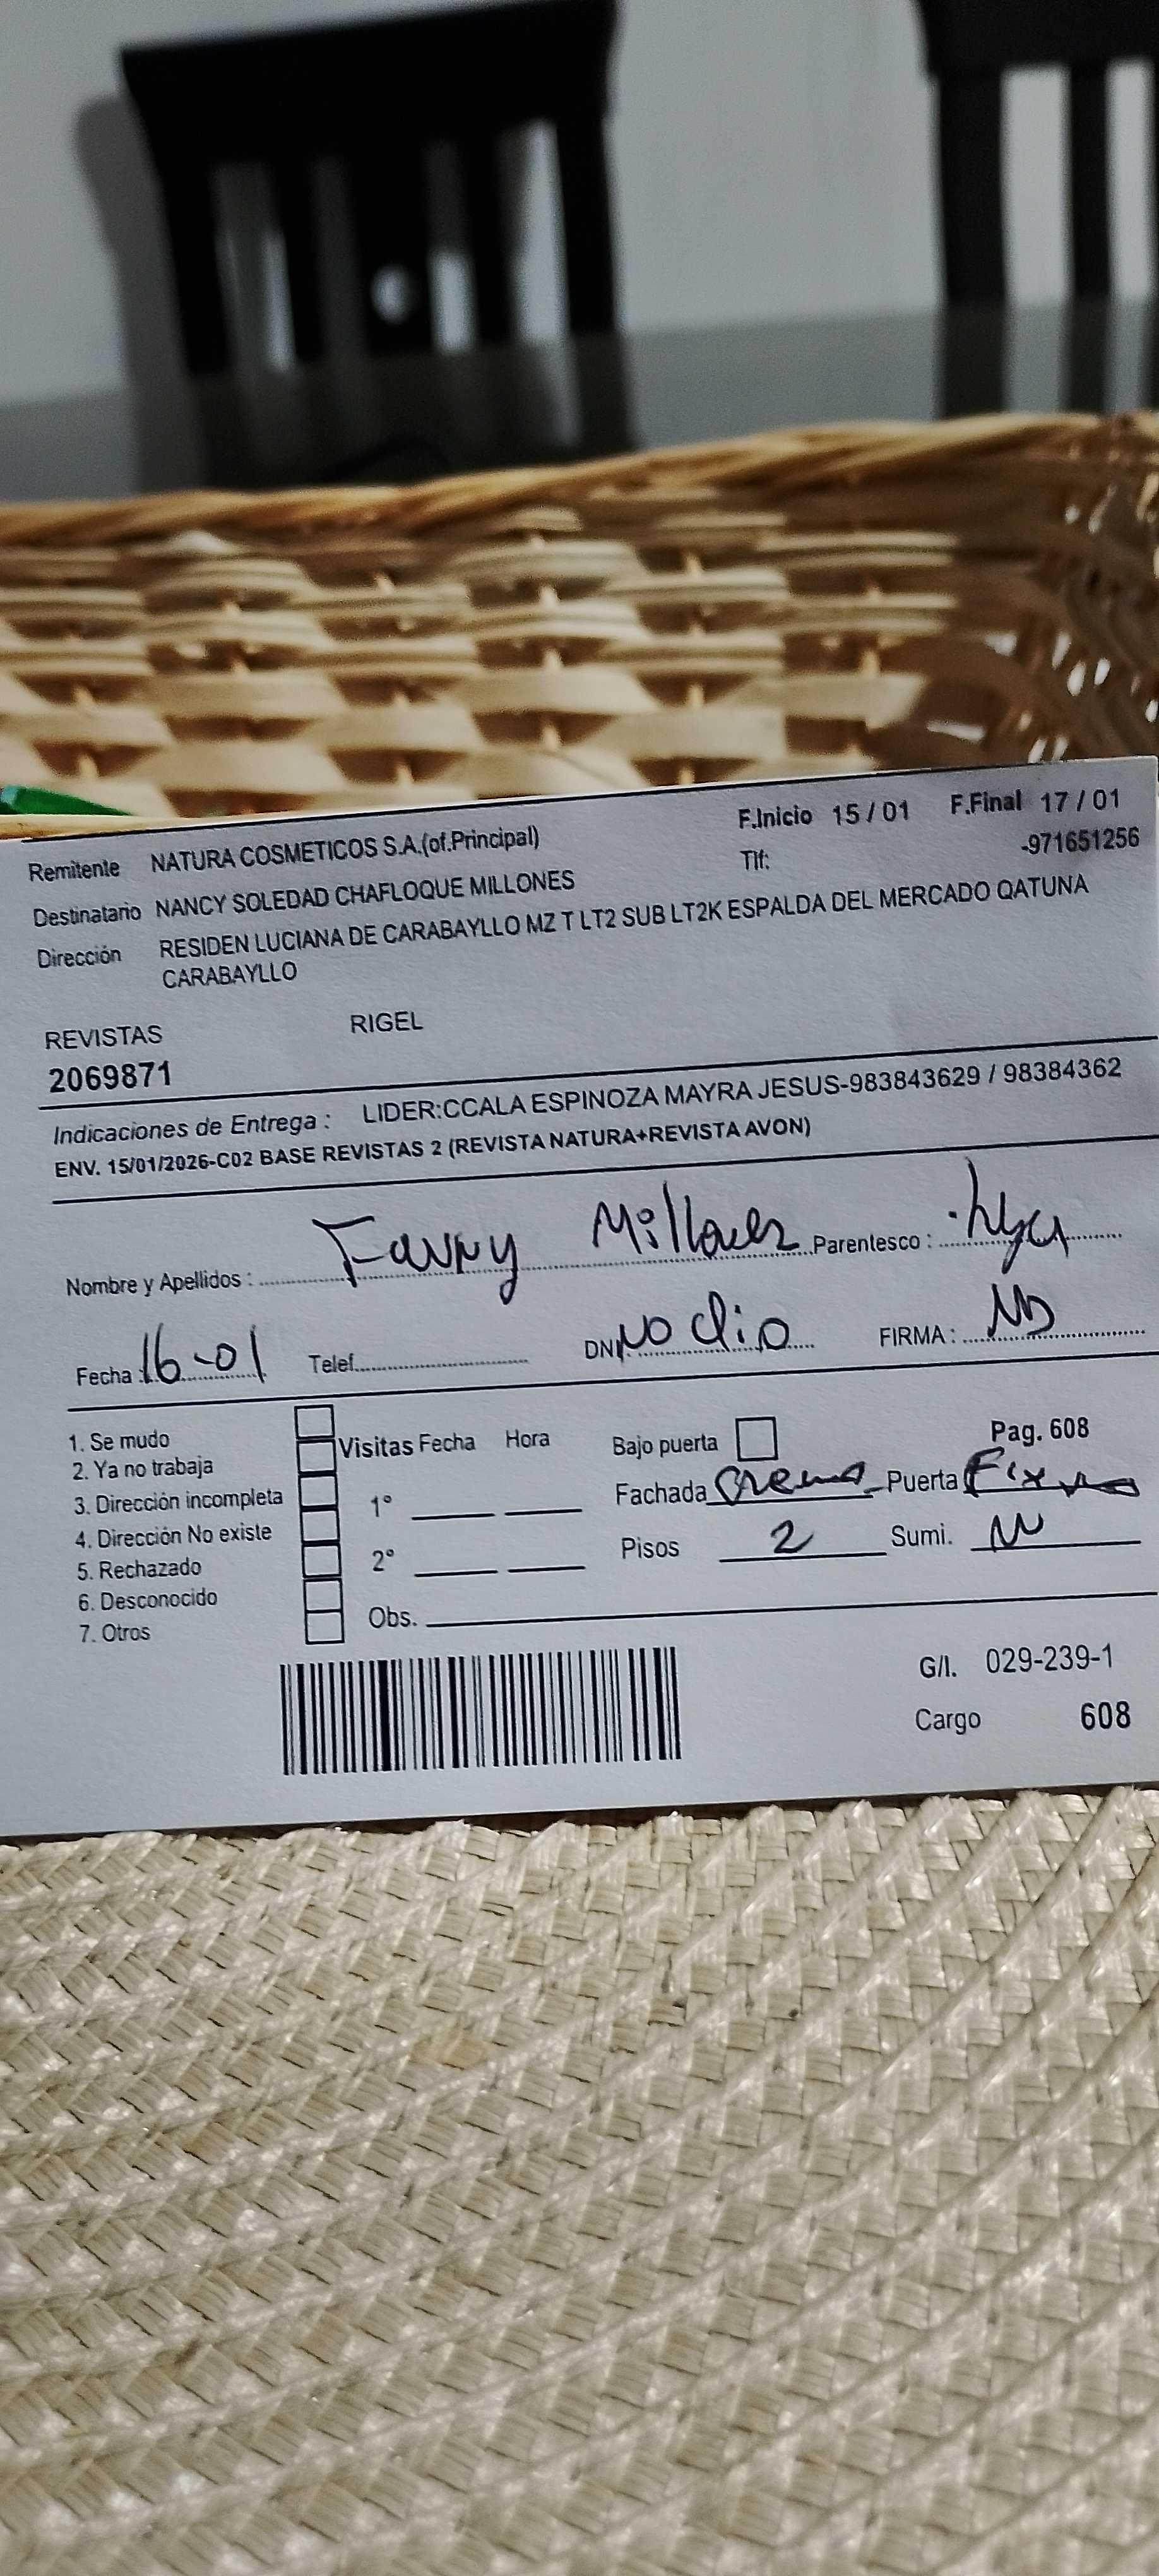 F.Inicio 15 / 01 F.Final 17 / 01
Remitente NATURA COSMETICOS S.A.(of.Principal)
Tlf: -971651256
Destinatario NANCY SOLEDAD CHAFLOQUE MILLONES
Dirección RESIDEN LUCIANA DE CARABAYLLO MZ T LT2 SUB LT2K ESPALDA DEL MERCADO QATUNA
CARABAYLLO
REVISTAS RIGEL
2069871
Indicaciones de Entrega : LIDER:CCALA ESPINOZA MAYRA JESUS-983843629 / 98384362
ENV. 15/01/2026-C02 BASE REVISTAS 2 (REVISTA NATURA+REVISTA AVON)
Nombre y Apellidos : Fanny Millones Parentesco :
Fecha : 16-01 Telef. DNI NO dio FIRMA :
1. Se mudo
2. Ya no trabaja
3. Dirección incompleta
4. Dirección No existe
5. Rechazado
6. Desconocido
7. Otros
Visitas Fecha Hora
1°
2°
Obs.
Bajo puerta Pag. 608
Fachada Crema Puerta
Pisos 2 Sumi.
G/I. 029-239-1
Cargo 608